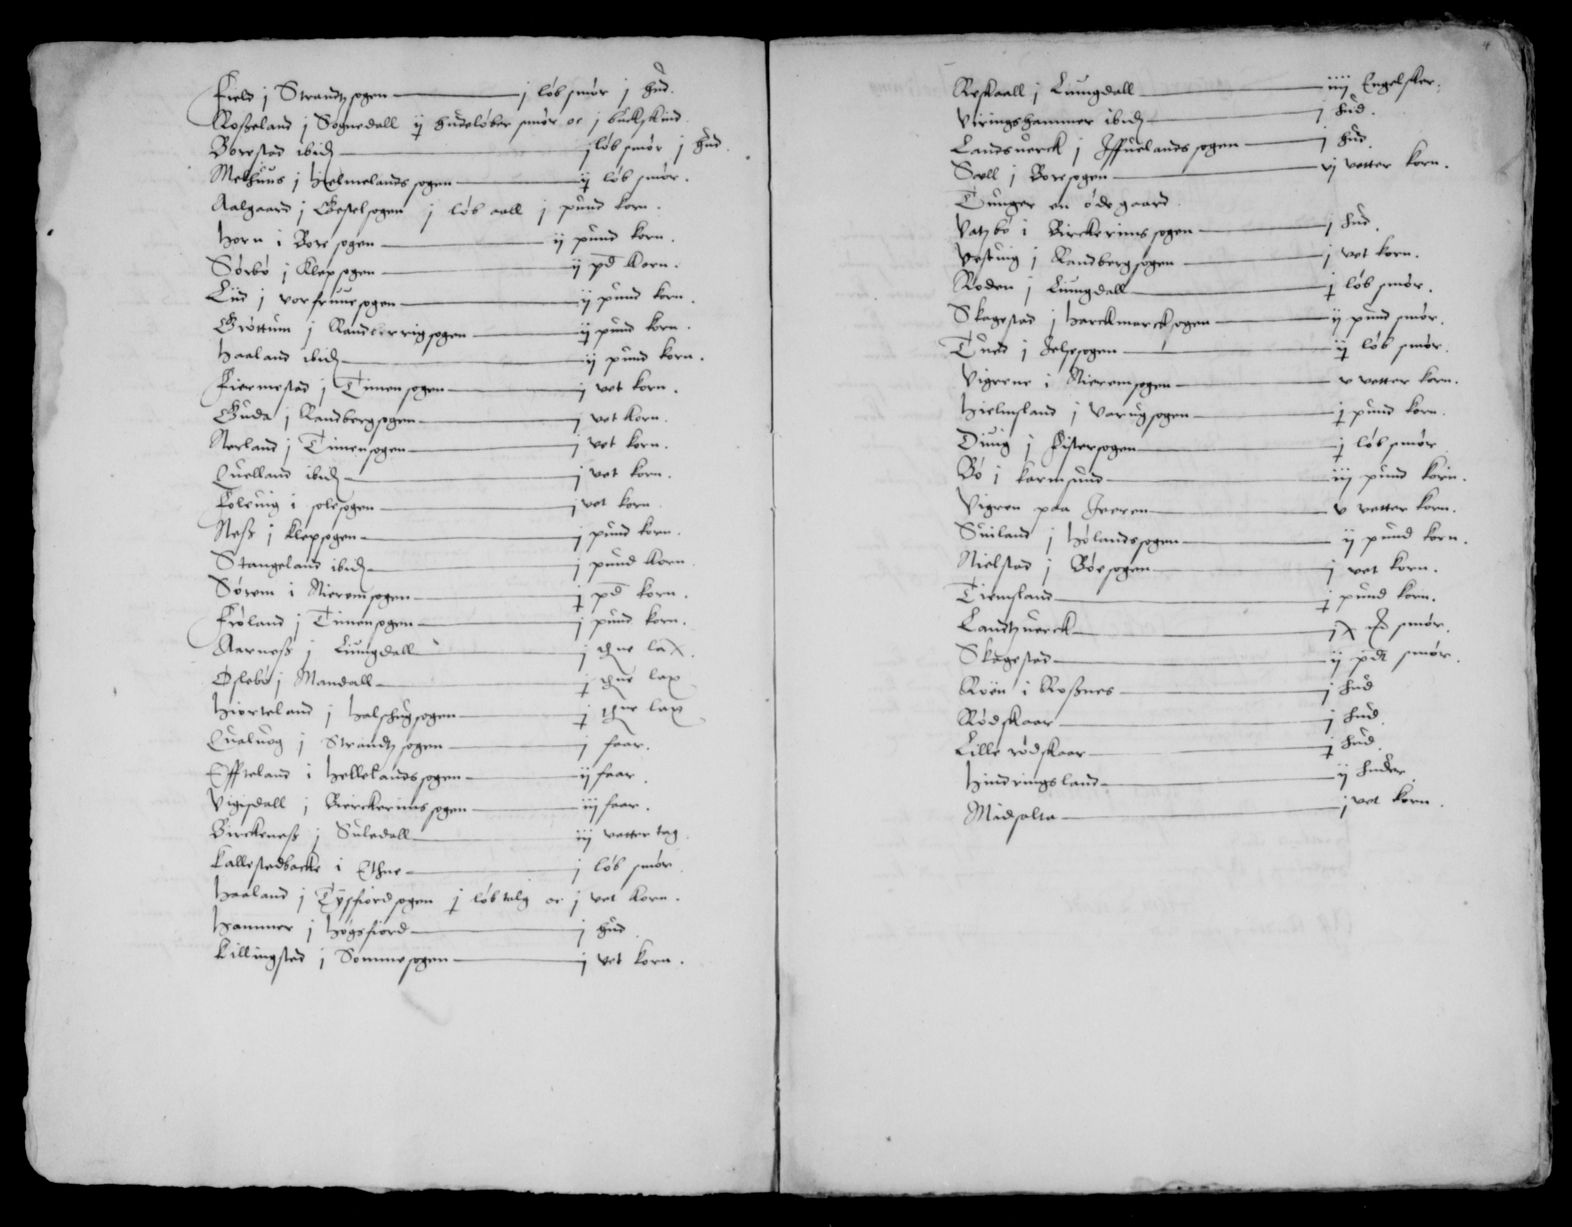 Field j Strandz sogen j løb smør j hud.
Roßeland j Sognedall ij hudeløber smør oc j buckskind.
Borestad ibid. j løb smør j hud.
Mehuus j Hielmelands sogen ij løb smør.
Aalgaard j Gestelsogen j løb aall j pund korn.
Horn i Bore sogen ij pund korn.
Sørbø j Klepsogen ij pd korn.
Lid j vorfruue sogen ij pund korn.
Grøttum j Randberrig sogen ij pund korn.
Haaland ibid. ij pund korn.
Fiermestad j Timen sogen j vet korn.
Guda j Randberg sogen j vet korn.
Nerland j Timen sogen j vet korn.
Quelland ibid. j vet korn.
Føleuig i sole sogen j vet korn.
Neß j Klepsogen j pund korn.
Stangeland ibid. j pund korn.
Sørem i Nierem sogen j pd korn.
Frøland j Timen sogen j pund korn.
Aarneß j Liungdall j thne lax.
Oslebø j Mandall j thne lax
Hierteland j Halshug sogen j thne lax
Qualuog j Strandz sogen j faar.
Effteland i Hellelands sogen ij faar.
Vigisdall j Bierckerims sogen iij faar.
Birckeneß j Suledall iij vetter tag.
Kallestadbacke i Ethne j løb smør
Haaland j Tysfiord sogen j løb talg oc j vet korn.
Hammer j Høgsfiord j hud.
Killingstad j Somme sogen j vet korn.
4
Reskaall j Liungdall iiij Engelsker.
Viringshammer ibid. j hud.
Landsuerck j Iffuelands sogen j hud.
Sell j Bore sogen vj vetter korn.
Tunger en øde gaard.
Vatzbø i Birckerims sogen j hud.
Vestuig j Randberg sogen j vet korn.
Roden j Liungdall j løb smør.
Skagestad j Harckmarck sogen ij pund smør.
Tued j Jelse sogen ij løb smør.
Vigrene i Nierem sogen v vetter korn.
Hielmsland j Varug sogen j pund korn.
Duig j Fister sogen j løb smør
Bø i karmsund iij pund korn.
Vigren paa Jeeren v vetter korn.
Suiland j Hølands sogen ij pund korn.
Nielstad j Bøe sogen j vet korn.
Tiemsland j pund korn.
Landzuerck smør.
Skagestad ij pdt smør.
Røen i Roßnes j hud
Rødskaar j hud
Lille rødskaar j hud.
Hindringsland ij huder.
Midsolta j vet korn.